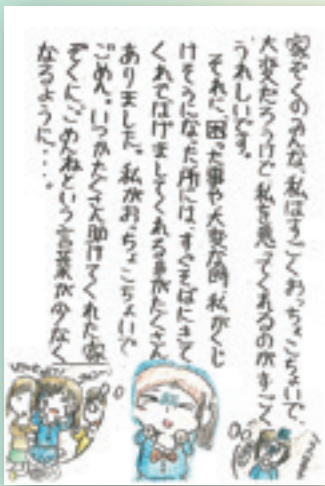 家ぞくのみんな、私はすごくおっちょこちょいで、
大変だろうけど私を思ってくれるのがすごく
うれしいです。
それに、困った事や大変な時、私がくじ
けそうになった所には、すぐそばにきて
くれてはげましてくれる事がたくさん
ありました。私がおっちょこちょいで
ごめん。いつかたくさん助けてくれた家
ぞくにごめんねという言葉が少なく
なるように・・・。